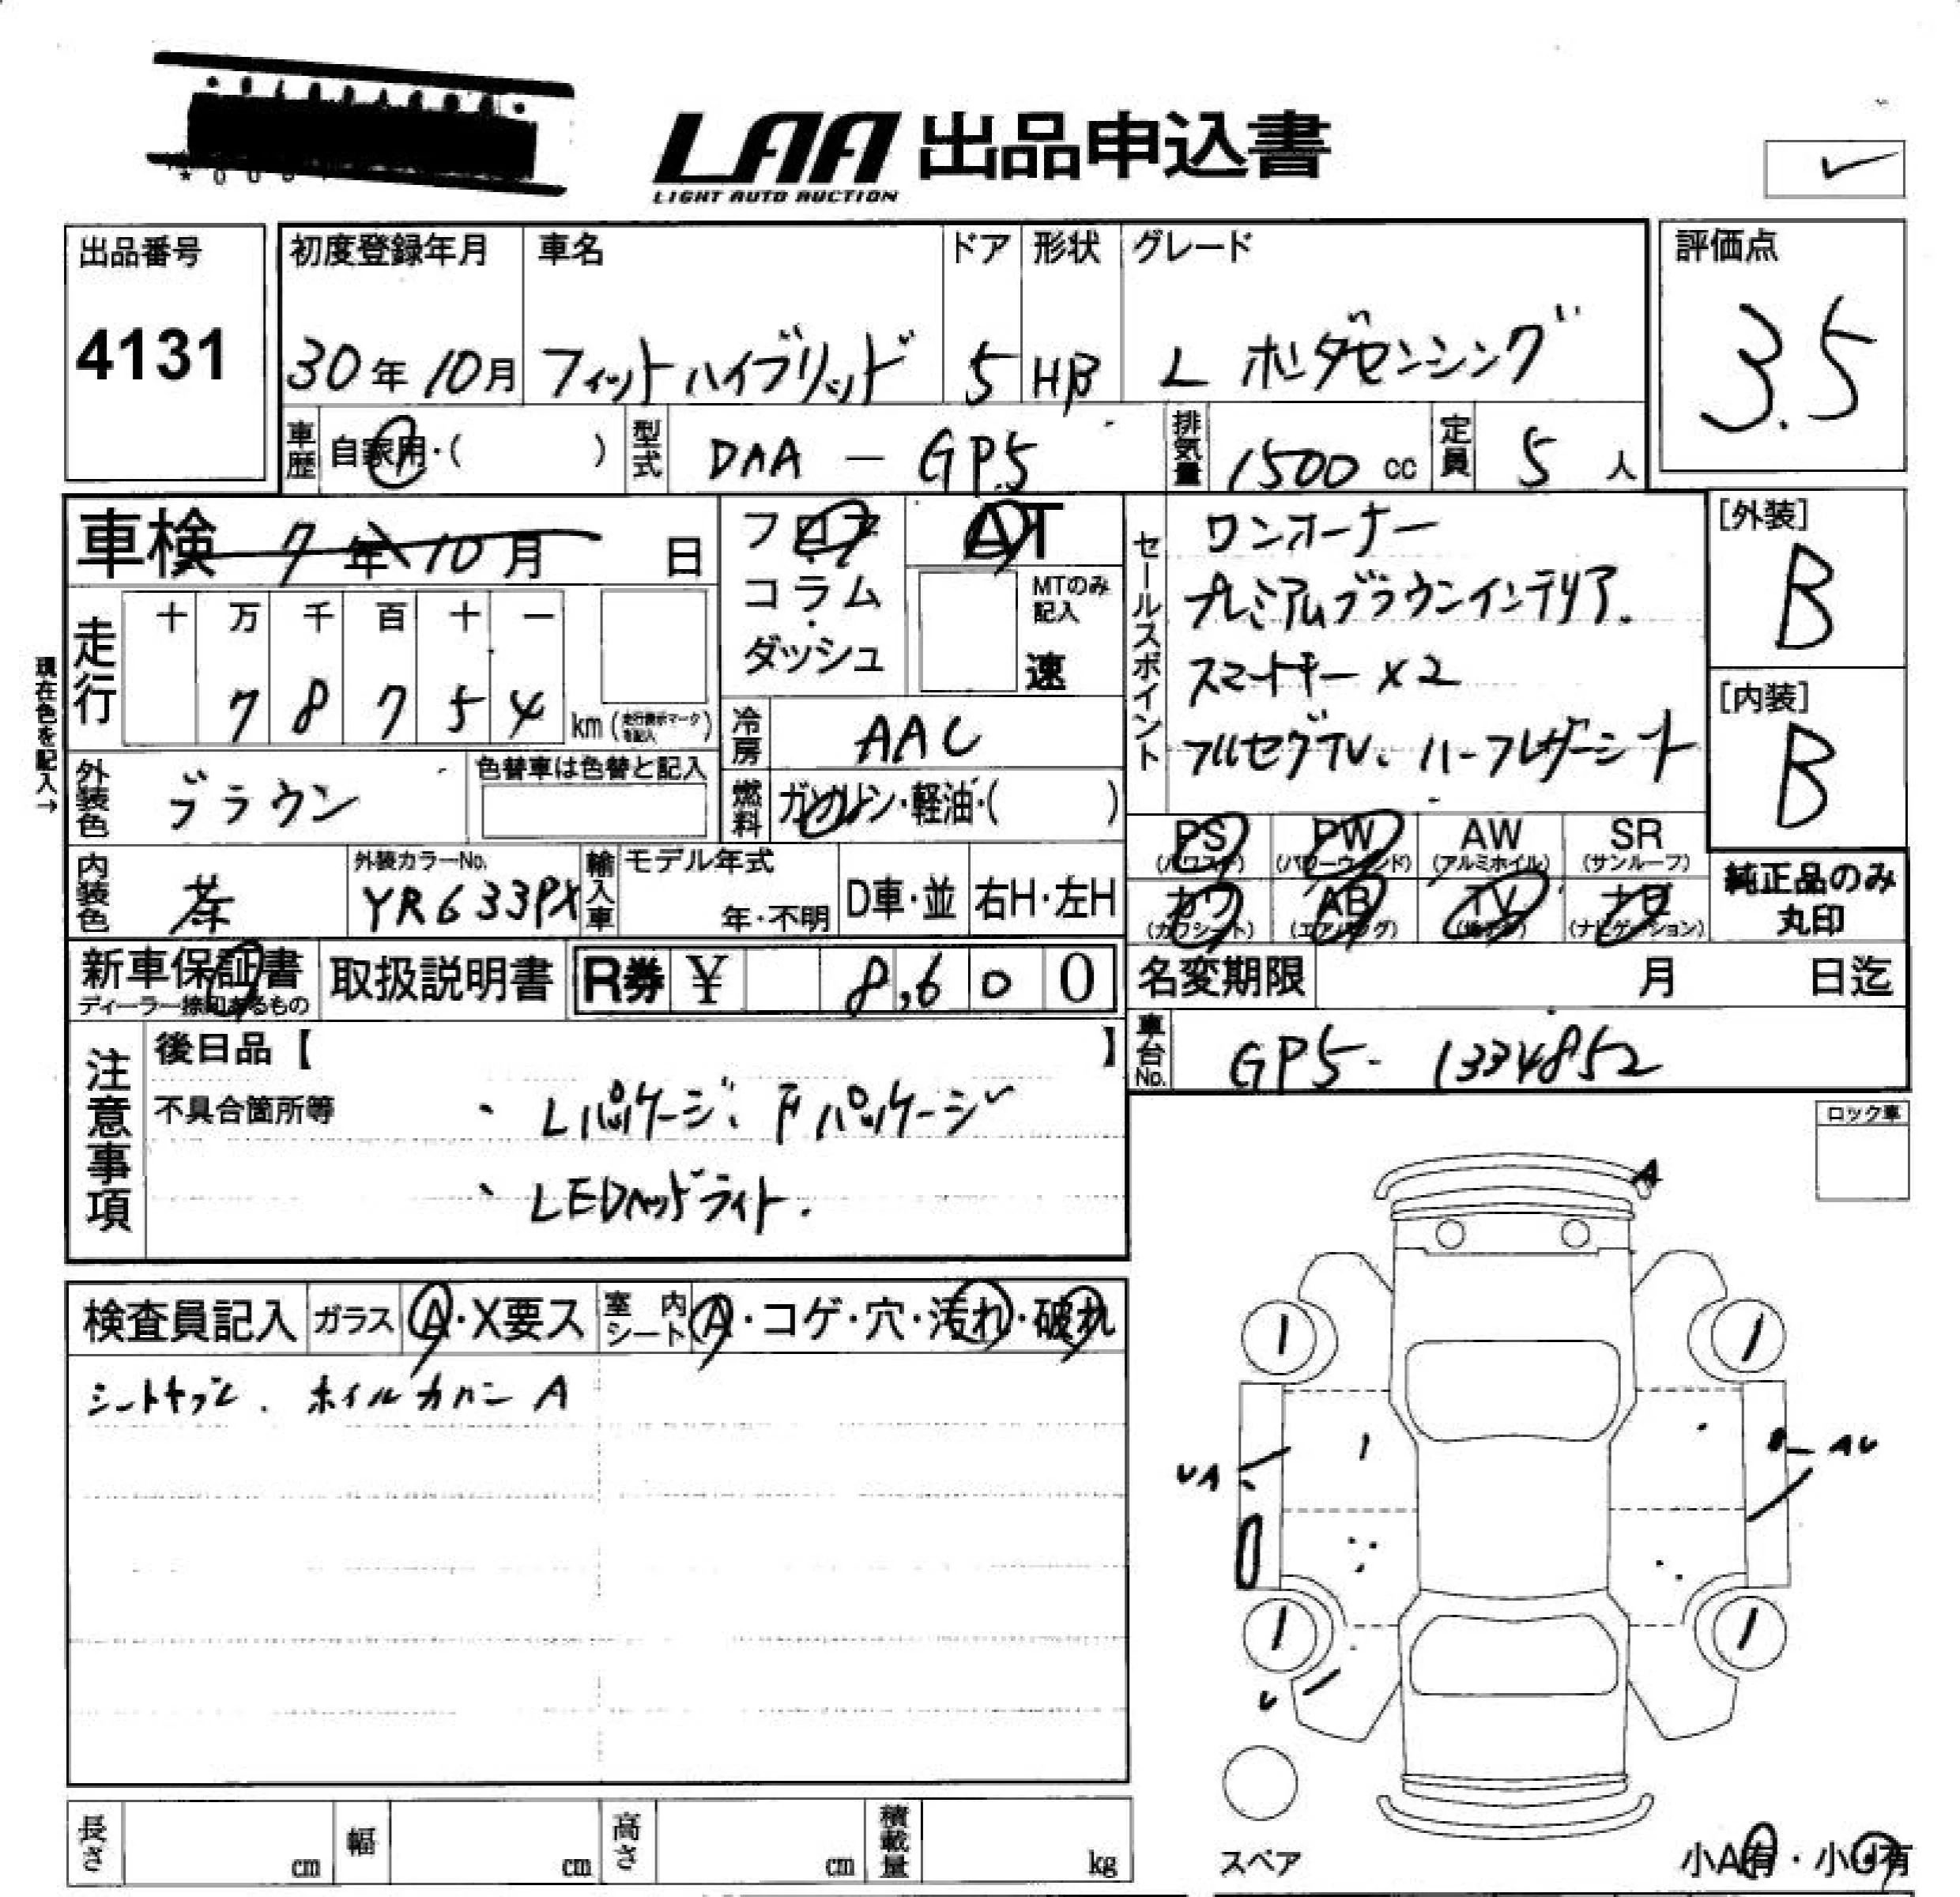 LAA 出品申込書
LIGHT AUTO AUCTION
出品番号
4131
初度登録年月 車名 ドア 形状 グレード 評価点
30年10月 フィットハイブリッド 5 HB L ホンダセンシング 3.5
車歴 自家用・( ) 型式 DAA - GP5 排気量 1500 cc 定員 5 人
車検 7年10月 日
フロア
コラム
ダッシュ
AT
MTのみ記入
速
セールスポイント
ワンオーナー
プレミアムブラウンインテリア.
スマートキー ×2
フルセグTV、ハーフレザーシート
[外装]
B
[内装]
B
現在色を記入→
走行 十 万 千 百 十 一
7 8 7 5 4 km (走行表示マークを記入)
冷房 AAC
外装色 ブラウン 色替車は色替と記入
燃料 ガソリン・軽油・( )
PS AW SR
PW
(パワステ) (パワーウィンド) (アルミホイル) (サンルーフ)
カワ AB TV ナビ
(カワシート) (エアバッグ) (ナビゲーション)
純正品のみ
丸印
内装色 茶 外装カラーNo. YR633PX 輸入車 モデル年式 年・不明 D車・並 右H・左H
新車保証書 取扱説明書 R券 ¥ 8,600
ディーラー捺印あるもの
名変期限 月 日迄
車台No. GP5- 1334852
注意事項
後日品【 】
不具合箇所等
、Lパッケージ、Fパッケージ
、LEDヘッドライト.
ロック車
検査員記入 ガラス A・X要ス 室内シート A・コゲ・穴・汚れ・破れ
シートキズレ、ホイルカバー A
A
UA
AU
U
スペア
小A有・小U有
長さ cm 幅 cm 高さ cm 積載量 kg